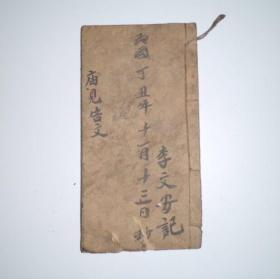 民國丁丑年十一月十三日抄
李文安記
庙見告文